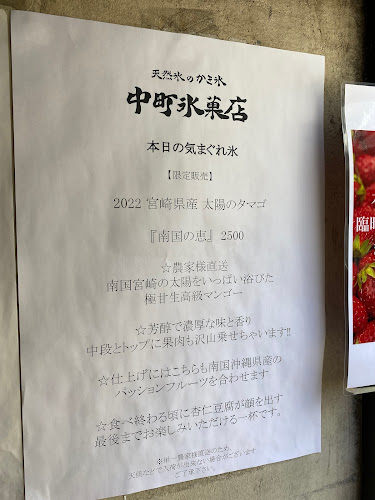 天然氷のかき氷
中町氷菓店
本日の気まぐれ氷
【限定販売】
2022 宮崎県産 太陽のタマゴ
『南国の恵』 2500
☆農家様直送
南国宮崎の太陽をいっぱい浴びた
極甘生高級マンゴー
☆芳醇で濃厚な味と香り
中段とトップに果肉も沢山乗せちゃいます!!
☆仕上げにはこちらも南国沖縄県産の
パッションフルーツを合わせます
☆食べ終わる頃に杏仁豆腐が顔を出す
最後までお楽しみいただける一杯です。
※単一農家様直送のため、
天候などで入荷が出来ない場合がございます
ご了承下さい。
臨時